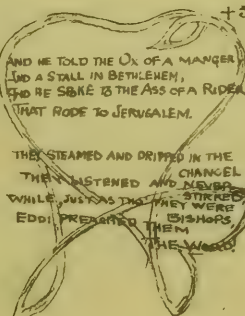 AND HE TOLD THE OX OF A MANGER
AND A STALL IN BETHLEHEM,
AND HE SPOKE TO THE ASS OF A RIDER
THAT RODE TO JERUSALEM.
THEY STEAMED AND DRIPPED IN THE CHANCEL
THEY LISTENED AND NEVER STIRRED
WHILE, JUST AS THO' THEY WERE BISHOPS,
EDDI PREACHED THEM THE WORD.